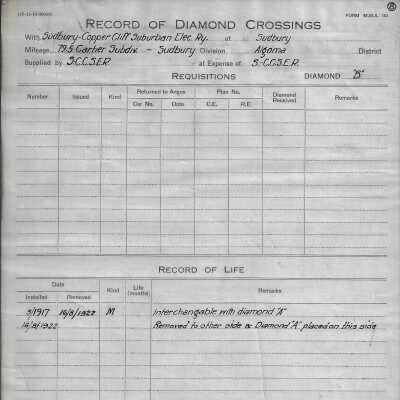 FORM M.W.A. 101
RECORD OF DIAMOND CROSSINGS
With Sudbury-Copper Cliff Suburban Elec. Ry. at Sudbury
Mileage 79.5 Cartier Subdiv. - Sudbury Division Algoma District
Supplied by S.C.C.S.E.R. at Expense of S.-C.C.S.E.R.
REQUISITIONS DIAMOND "B"
Number Issued Kind Returned to Angus Plan No. Diamond Received Remarks
Car No. Date C.E. R.E.
RECORD OF LIFE
Date Kind Life (months) Remarks
Installed Removed
5/1917 16/8/1922 M Interchangable with diamond "A"
16/8/1922 Removed to other side & Diamond "A" placed on this side